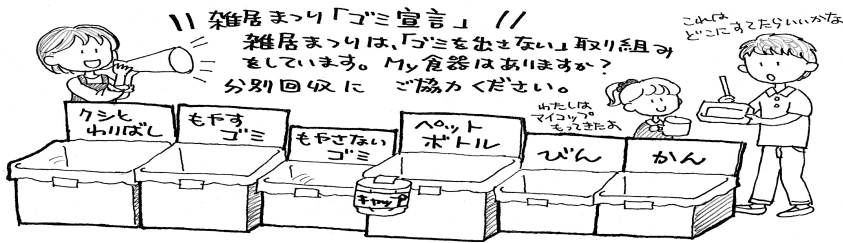 雑居まつり「ゴミ宣言」
雑居まつりは、「ゴミを出さない」取り組み
をしています。My食器はありますか?
分別回収に ご協力ください。
これは
どこにすてたらいいかな
わたしは
マイコップ
もってきたよ
クシと
わりばし
もやす
ゴミ
もやさない
ゴミ
ペット
ボトル
キャップ
びん
かん